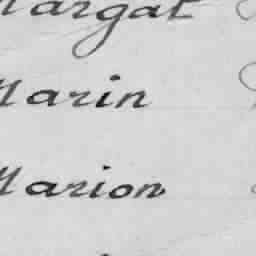 Margat
Marin
Marion